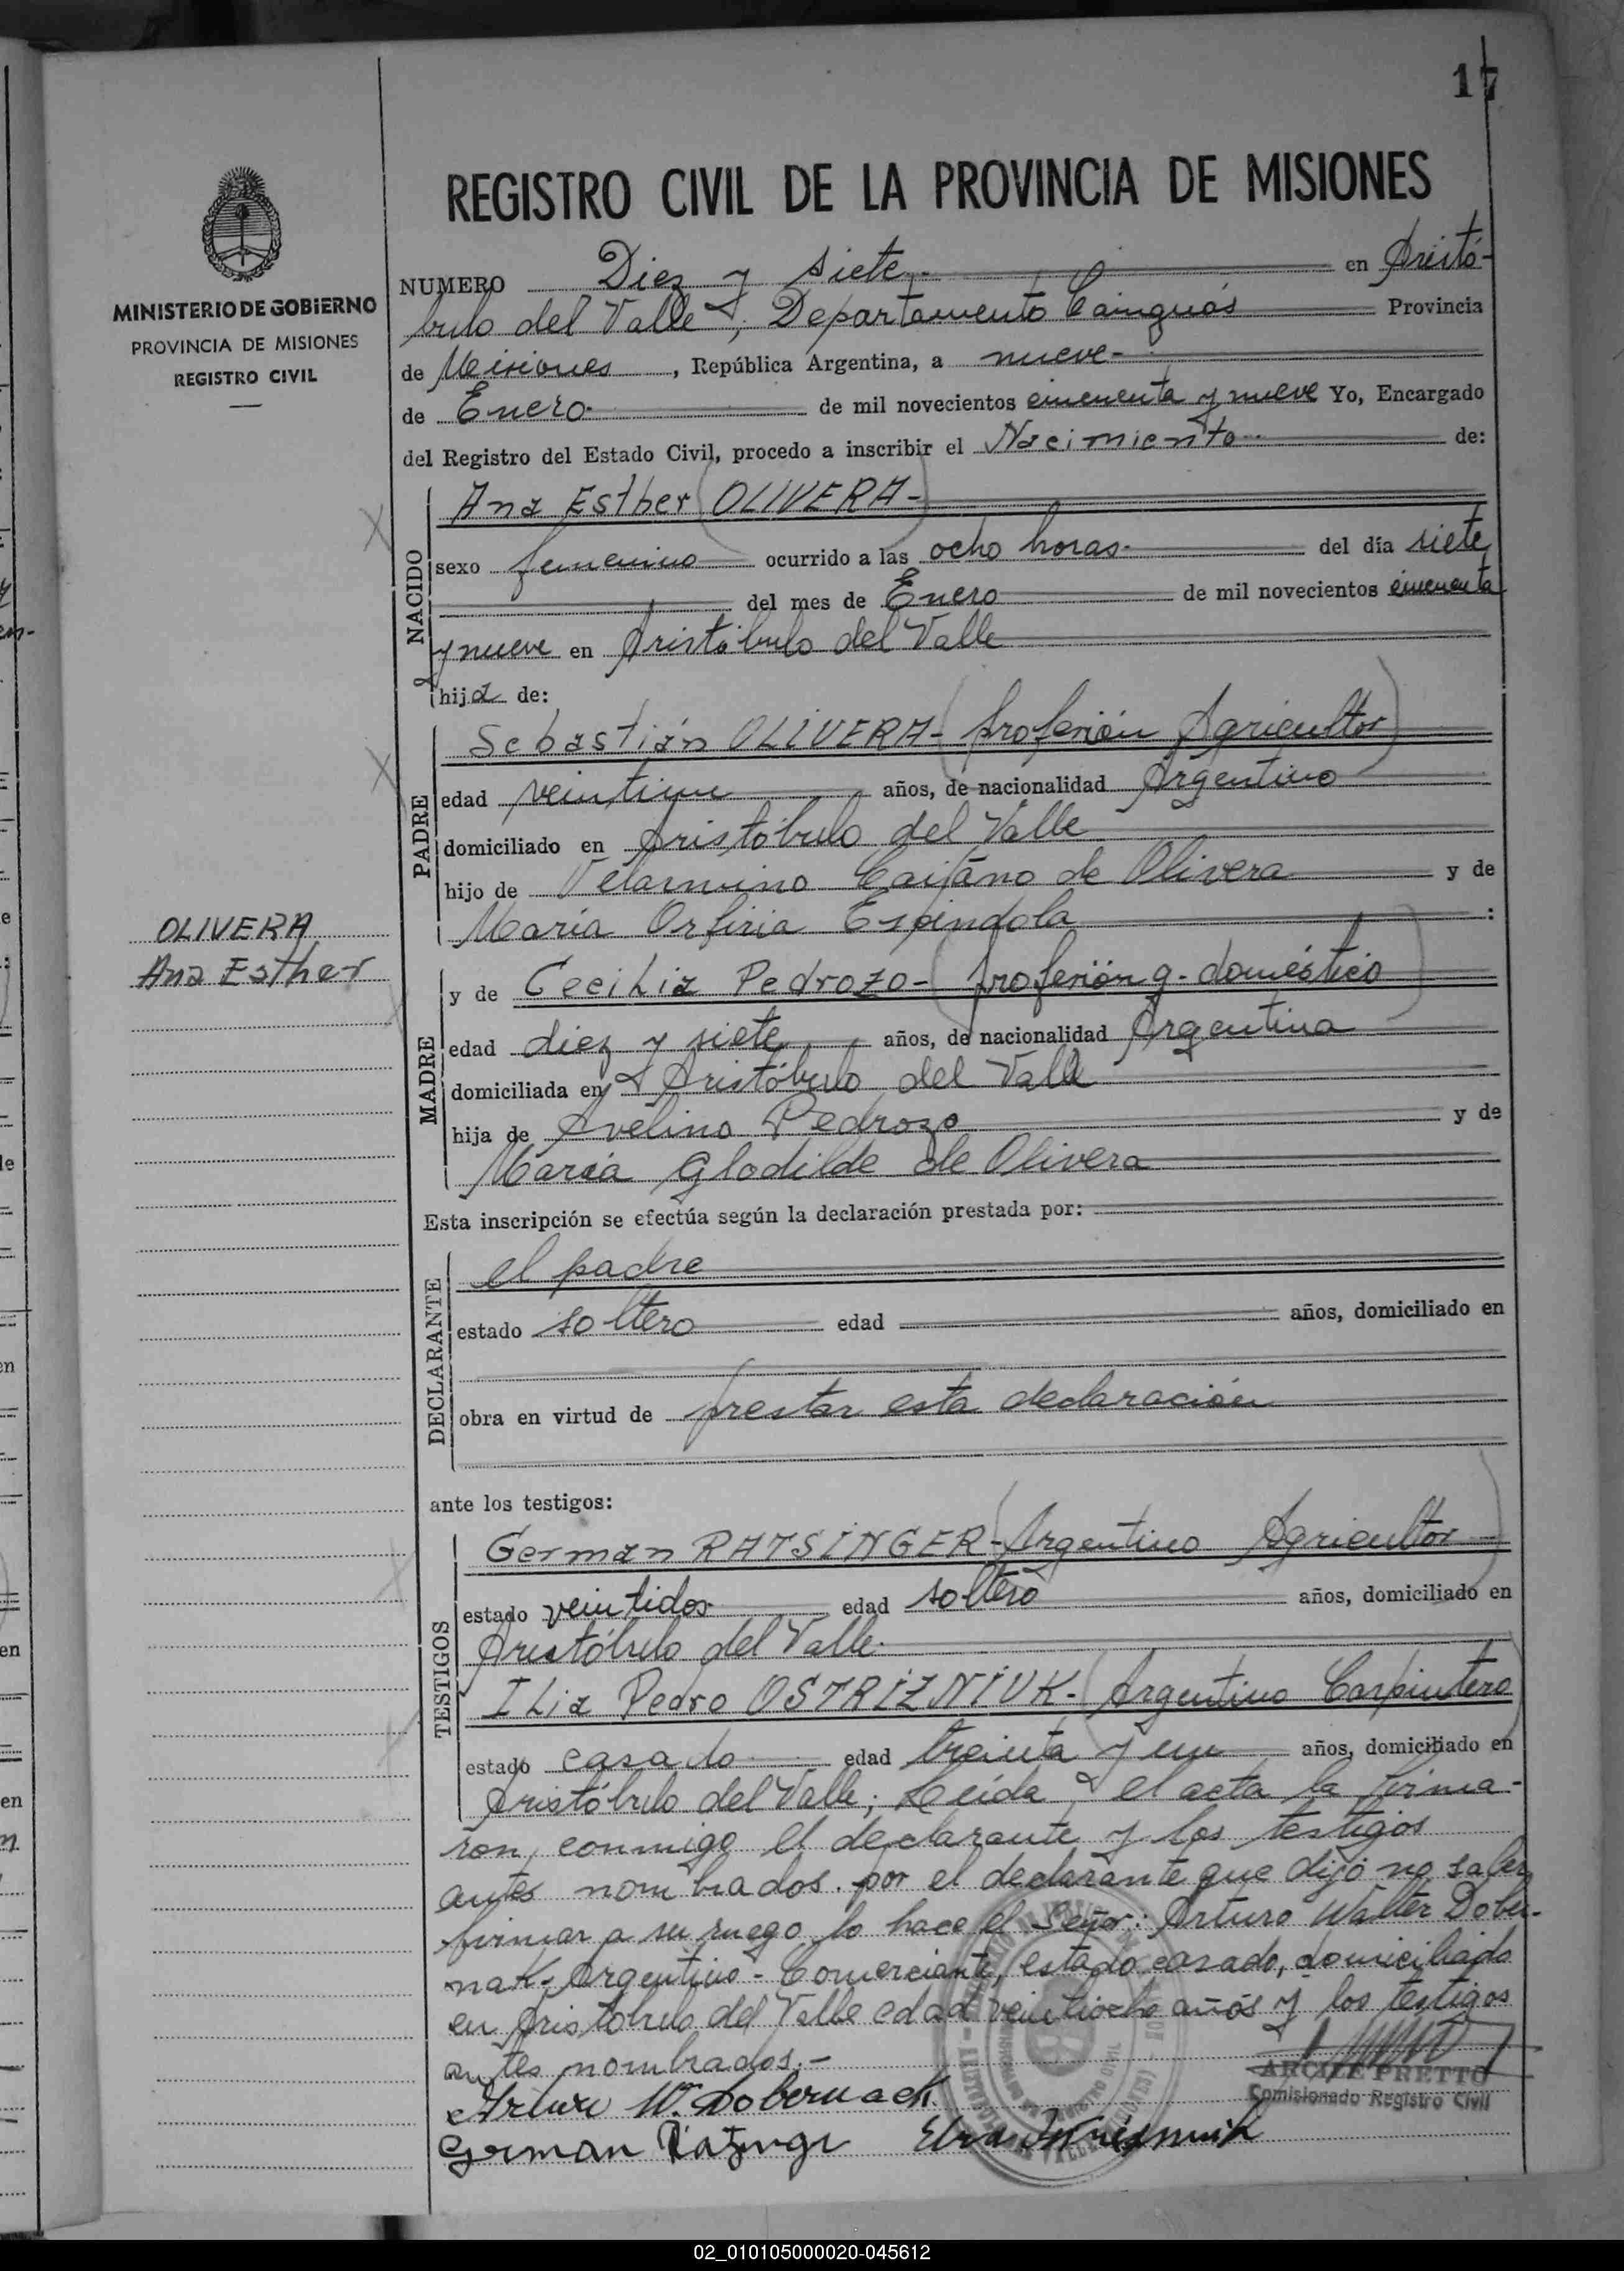 17
REGISTRO CIVIL DE LA PROVINCIA DE MISIONES
MINISTERIO DE GOBIERNO
PROVINCIA DE MISIONES
REGISTRO CIVIL
NUMERO Diez y siete.- en Aristó-
bulo del Valle, Departamento Cainguás Provincia
de Misiones, República Argentina, a nueve-
de Enero- de mil novecientos cincuenta y nueve Yo, Encargado
del Registro del Estado Civil, procedo a inscribir el Nacimiento- de:
NACIDO
Ana Esther (OLIVERA-)
sexo femenino ocurrido a las ocho horas- del día siete
del mes de Enero de mil novecientos cincuenta
y nueve en Aristóbulo del Valle
hija de:
PADRE
Sebastián OLIVERA- (profesión Agricultor)
edad veintiun años, de nacionalidad Argentino
domiciliado en Aristóbulo del Valle
hijo de Velarmino Caitano de Olivera y de
María Orfiria Espindola :
OLIVERA
Ana Esther
MADRE
y de Cecilia Pedrozo- (profesión q. doméstico)
edad diez y siete años, de nacionalidad Argentina
domiciliada en Aristóbulo del Valle
hija de Avelino Pedrozo y de
María Glodilde de Olivera
Esta inscripción se efectúa según la declaración prestada por:
DECLARANTE
el padre
estado soltero edad años, domiciliado en
obra en virtud de prestar esta declaración
ante los testigos:
TESTIGOS
German RATSINGER- (Argentino Agricultor)
estado veintidos edad soltero años, domiciliado en
Aristóbulo del Valle.
Ilia Pedro OSTRIZNIUK- (Argentino Carpintero)
estado casado edad treinta y un años, domiciliado en
Aristóbulo del Valle; Leída el acta la firma-
ron, conmigo el declarante y los testigos
antes nombrados. por el declarante que dijo no saber
firmar a su ruego lo hace el Señor: Arturo Walter Dober-
nak- Argentino- Comerciante, estado casado, domiciliado
en Aristóbulo del Valle edad veintiocho años y los testigos
antes nombrados.-
ARCILE PRETTO
Comisionado Registro Civil
Arturo W. Dobernack
German
02_010105000020-045612